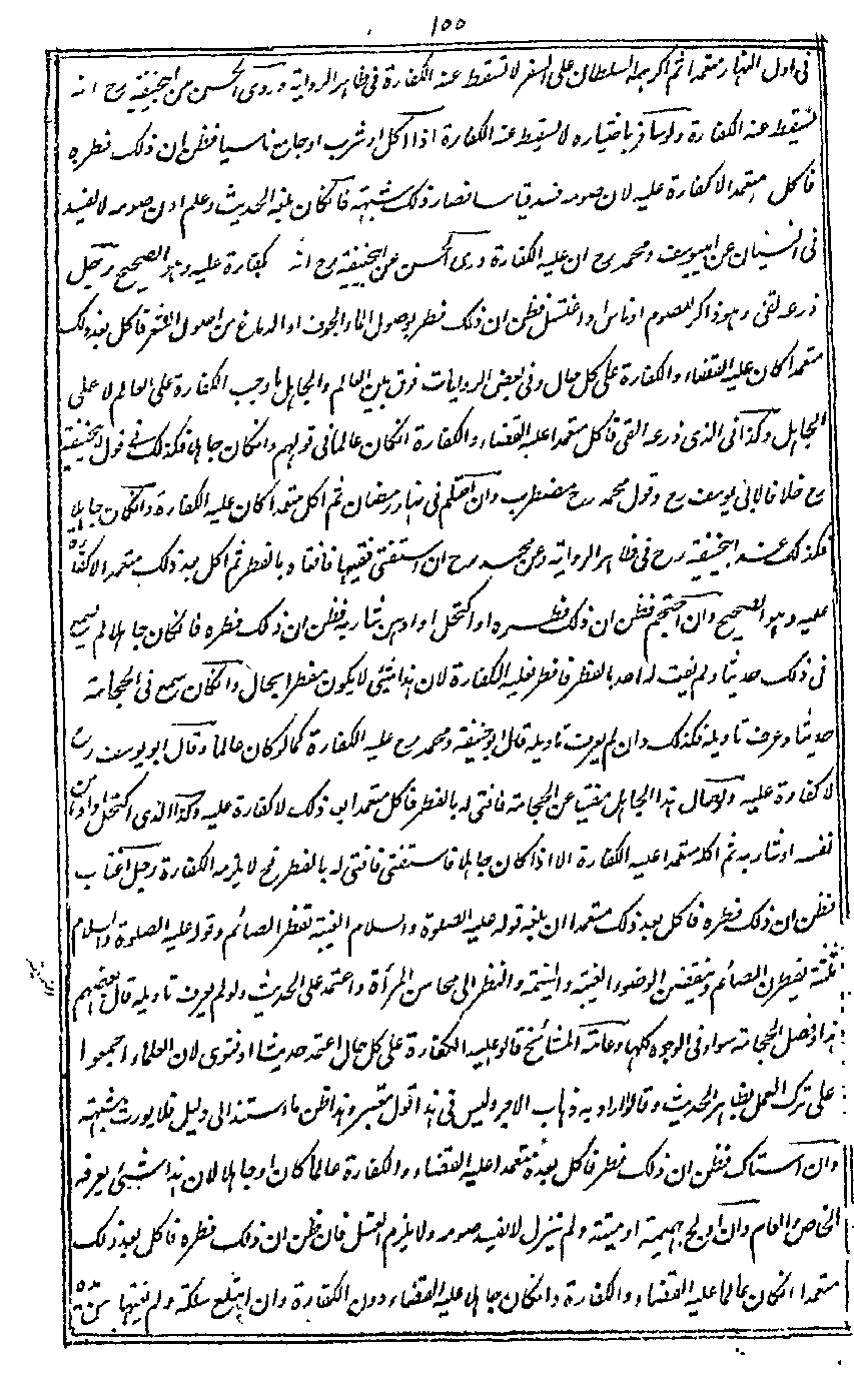 ١٥٥
فى اول النهار متعمدا ثم اكرهه السلطان على السفر لا تسقط عنه الكفارة فى ظاهر الرواية وروى الحسن عن ابيحنيفة رح انه
تسقط عنه الكفارة ولو سافر باختياره لا تسقط عنه الكفارة اذا اكل او شرب او جامع ناسيا فظن ان ذلك فطره
فاكل متعمدا لا كفارة عليه لان صومه فسد قياسا فصار ذلك شبهة فانكان بلغه الحديث وعلم ان صومه لا يفسد
فى النسيان عن ابييوسف ومحمد رح ان عليه الكفارة وروى الحسن عن ابيحنيفة رح انه لا كفارة عليه وهو الصحيح رجل
ذرعه القئ وهو ذاكر للصوم او ناس او اغتسل فظن ان ذلك فطره لوصول الماء الجوف او الدماغ من اصول الشعر فاكل بعد ذلك
متعمدا كان عليه القضاء والكفارة على كل حال وفى بعض الروايات فرق بين العالم والجاهل فاوجب الكفارة على العالم لا على
الجاهل وكذا فى الذى ذرعه القئ فاكل متعمدا عليه القضاء والكفارة انكان عالما فى قولهم وانكان جاهلا فكذلك فى قول ابيحنيفة
رح خلافا لابى يوسف رح وقول محمد رح مضطرب وان احتلم فى نهار رمضان ثم اكل متعمدا كان عليه الكفارة وانكان جاهلا
فكذلك عند ابيحنيفة رح فى ظاهر الرواية وعن محمد رح ان استفتى فقيها فافتاه بالفطر ثم اكل بعد ذلك متعمدا لا كفارة
عليه وهو الصحيح وان احتجم فظن ان ذلك فطره او اكتحل او ادهن شاربه فظن ان ذلك فطره فانكان جاهلا لم يسمع
فى ذلك حديثا ولم يفت له احد بالفطر فافطر فعليه الكفارة لان هذا شئ لا يكون مفطرا بحال وانكان سمع فى الحجامة
حديثا وعرف تاويله فكذلك وان لم يعرف تاويله قال ابوحنيفة ومحمد رح عليه الكفارة كما لو كان عالما وقال ابويوسف رح
لا كفارة عليه ولو سال هذا الجاهل مفتيا عن الحجامة فافتى له بالفطر فاكل متعمدا بعد ذلك لا كفارة عليه وكذا الذى اكتحل او ادهن
نفسه او شاربه ثم اكل متعمدا عليه الكفارة الا اذا كان جاهلا فاستفتى فافتى له بالفطر فح لا يلزمه الكفارة رجل اغتاب
فظن ان ذلك فطره فاكل بعد ذلك متعمدا ان بلغه قوله عليه الصلوة والسلام الغيبة تفطر الصائم وقوله عليه الصلوة والسلام
ثلثة يفطرن الصائم وينقضن الوضوء الغيبة والنميمة والنظر الى محاسن المرأة واعتمد على الحديث ولو لم يعرف تاويله قال بعضهم
هذا وفصل الحجامة سواء فى الوجوه كلها وعامة المشائخ قالوا عليه الكفارة على كل حال اعتمد حديثا او فتوى لان العلماء اجمعوا
على ترك العمل بظاهر الحديث وقالوا اراد به ذهاب الاجر وليس فى هذا قول معتبر وهذا ظن ما استند الى دليل فلا يورث شبهة
وان استاك فظن ان ذلك فطره فاكل بعده متعمدا عليه القضاء والكفارة عالما كان او جاهلا لان هذا شئ يعرفه
الخاص والعام وان اولج بهيمة او ميتة ولم ينزل لا يفسد صومه ولا يلزم الغسل فان ظن ان ذلك فطره فاكل بعد ذلك
متعمدا انكان عالما عليه القضاء والكفارة وانكان جاهلا عليه القضاء دون الكفارة وان ابتلع سلكة ولم يغيبها